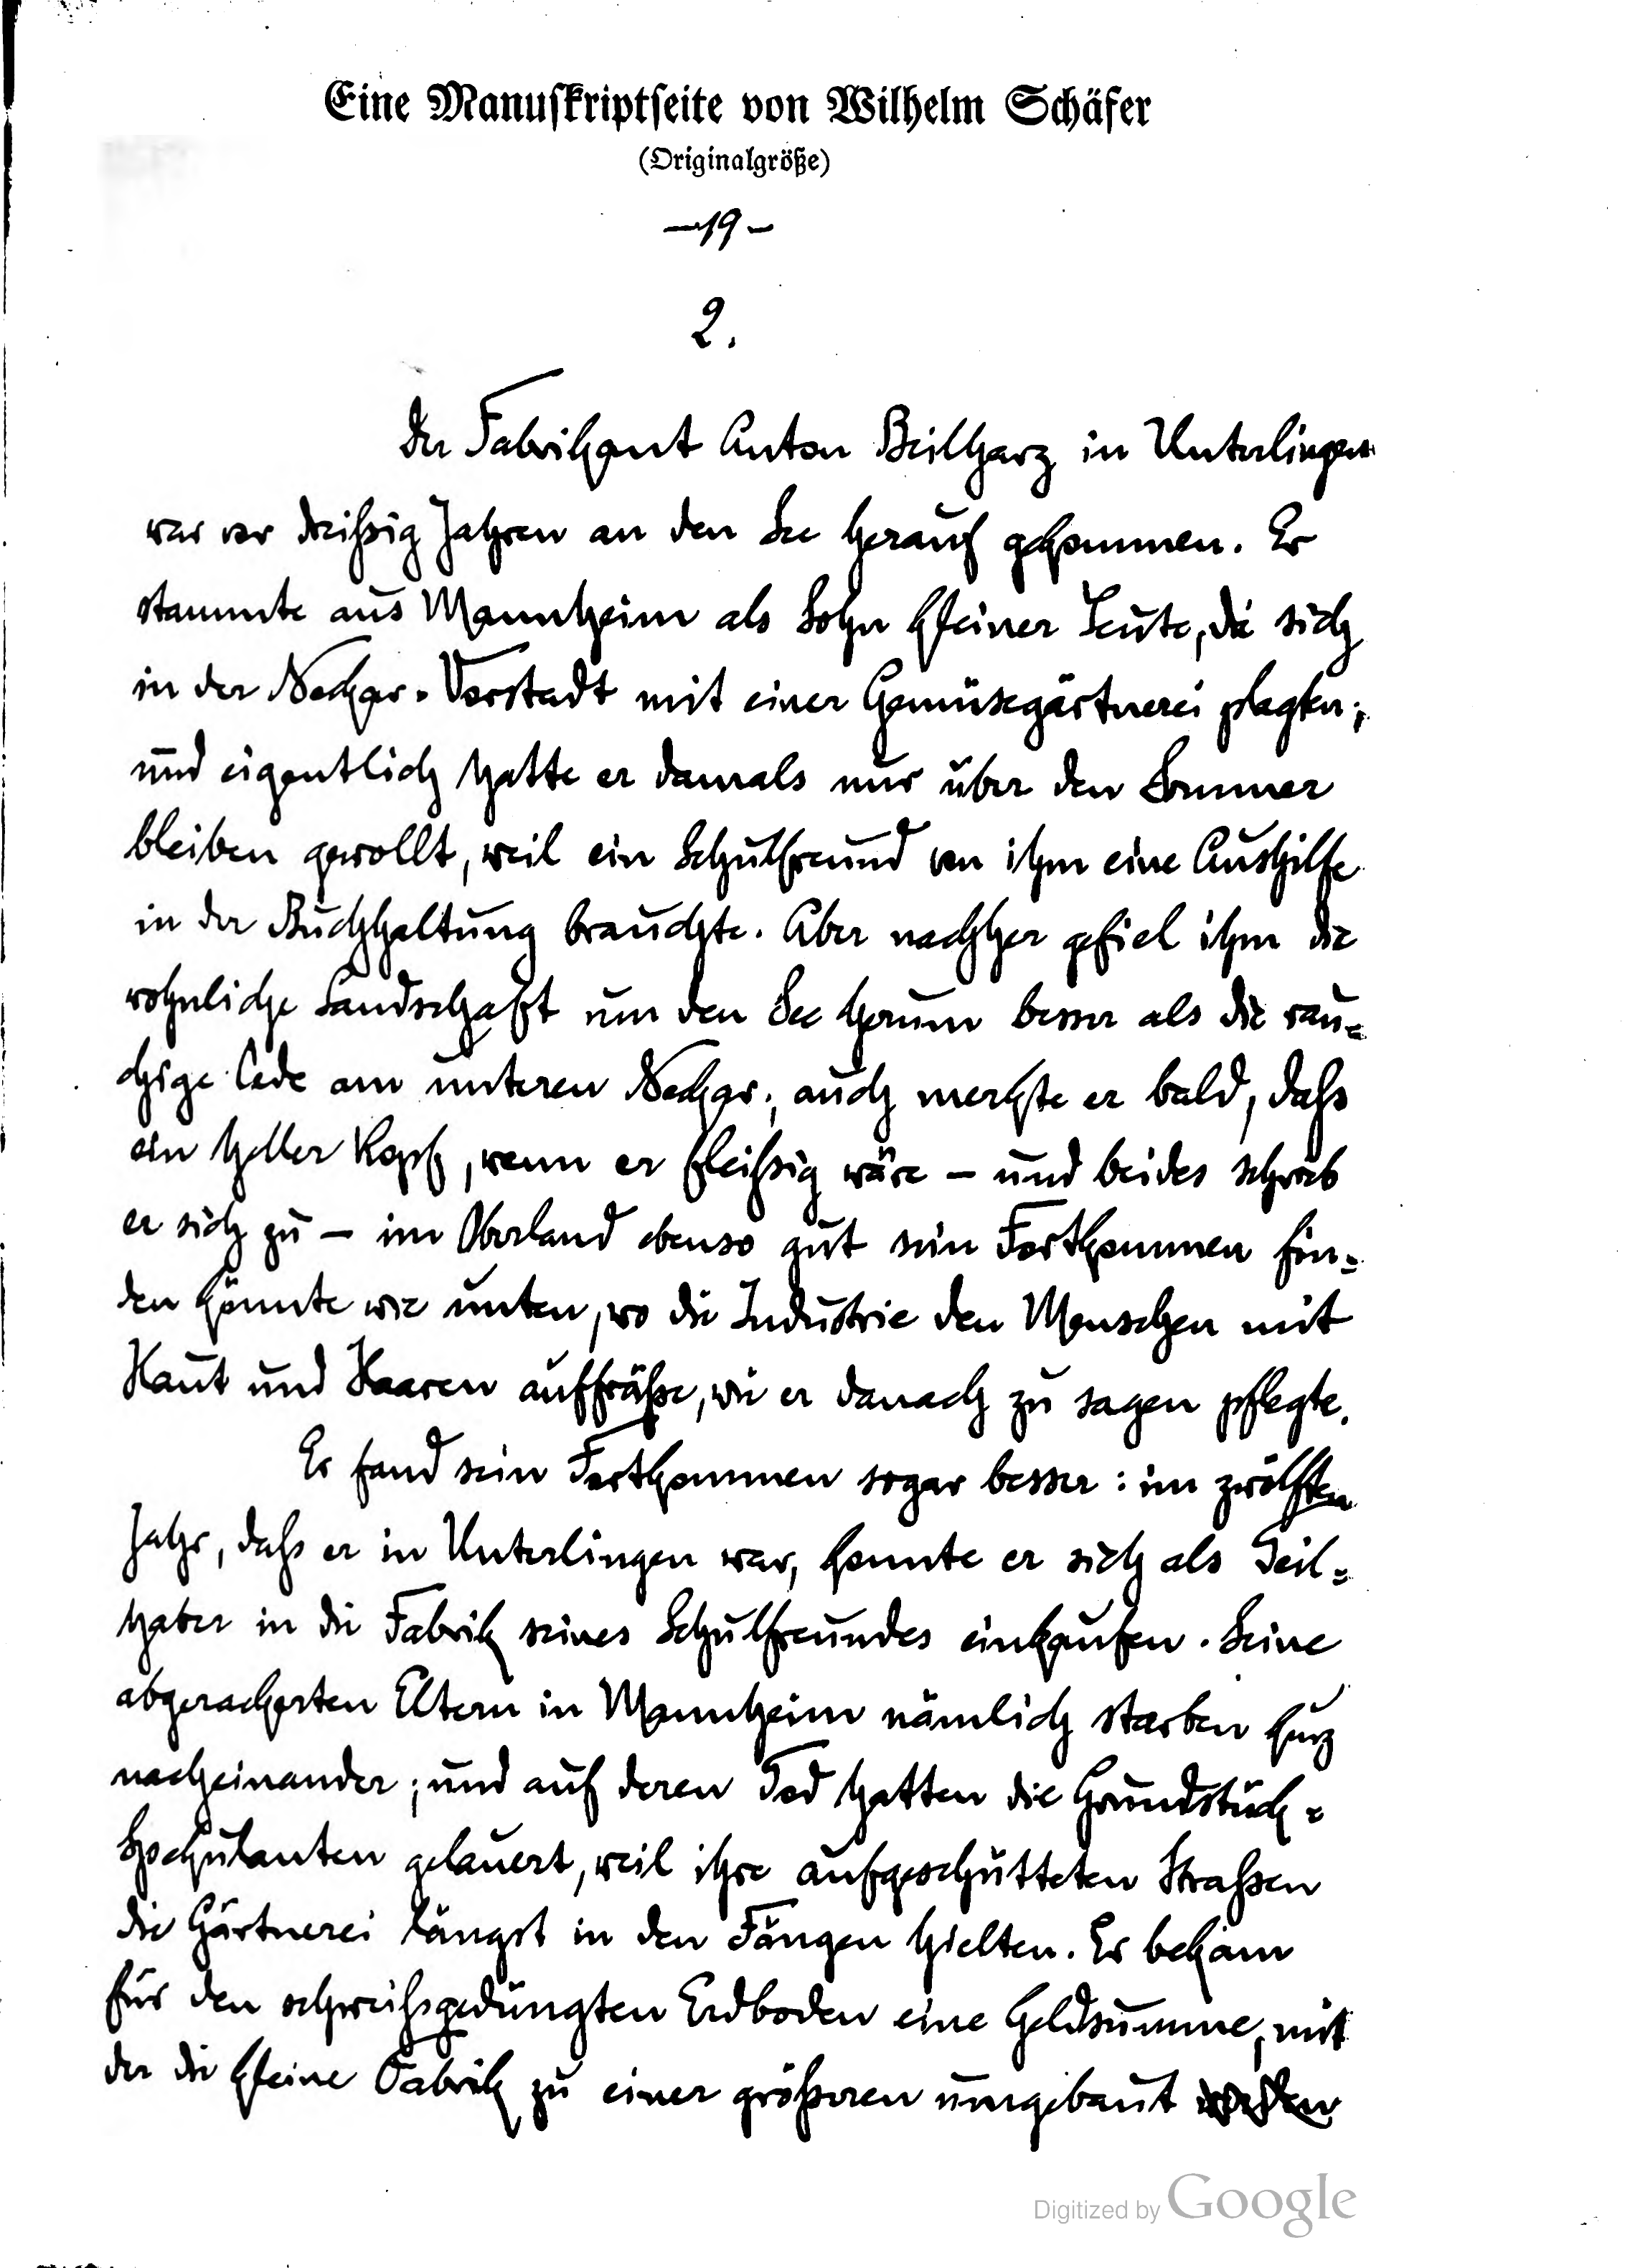 Eine Manuskriptseite von Wilhelm Schäfer
(Originalgröße)
— 19 —
2.
Der Fabrikant Anton Beilharz in Unterlingen
war vor dreißig Jahren an den See herauf gekommen. Er
stammte aus Mannheim als Sohn kleiner Leute, die sich
in der Neckar-Vorstadt mit einer Gemüsegärtnerei plagten;
und eigentlich hatte er damals nur über den Sommer
bleiben gewollt, weil ein Schulfreund von ihm eine Aushilfe
in der Buchhaltung brauchte. Aber nachher gefiel ihm die
wohnliche Landschaft um den See herum besser als die rau=
chige Öde am unteren Neckar; auch merkte er bald, daß
ein heller Kopf, wenn er fleißig wäre – und beides schrieb
er sich zu – im Oberland ebenso gut sein Fortkommen fin=
den könnte wie unten, wo die Industrie den Menschen mit
Haut und Haaren auffräße, wie er danach zu sagen pflegte.
Er fand sein Fortkommen sogar besser: im zwölften
Jahr, daß er in Unterlingen war, konnte er sich als Teil=
haber in die Fabrik seines Schulfreundes einkaufen. Seine
abgerackerten Eltern in Mannheim nämlich starben kurz
nacheinander; und auf deren Tod hatten die Grundstück=
Spekulanten gelauert, weil ihre aufgeschütteten Straßen
die Gärtnerei längst in den Fängen hielten. Er bekam
für den schweißgedüngten Erdboden eine Geldsumme, mit
der die kleine Fabrik zu einer größeren umgebaut werden
Digitized by Google